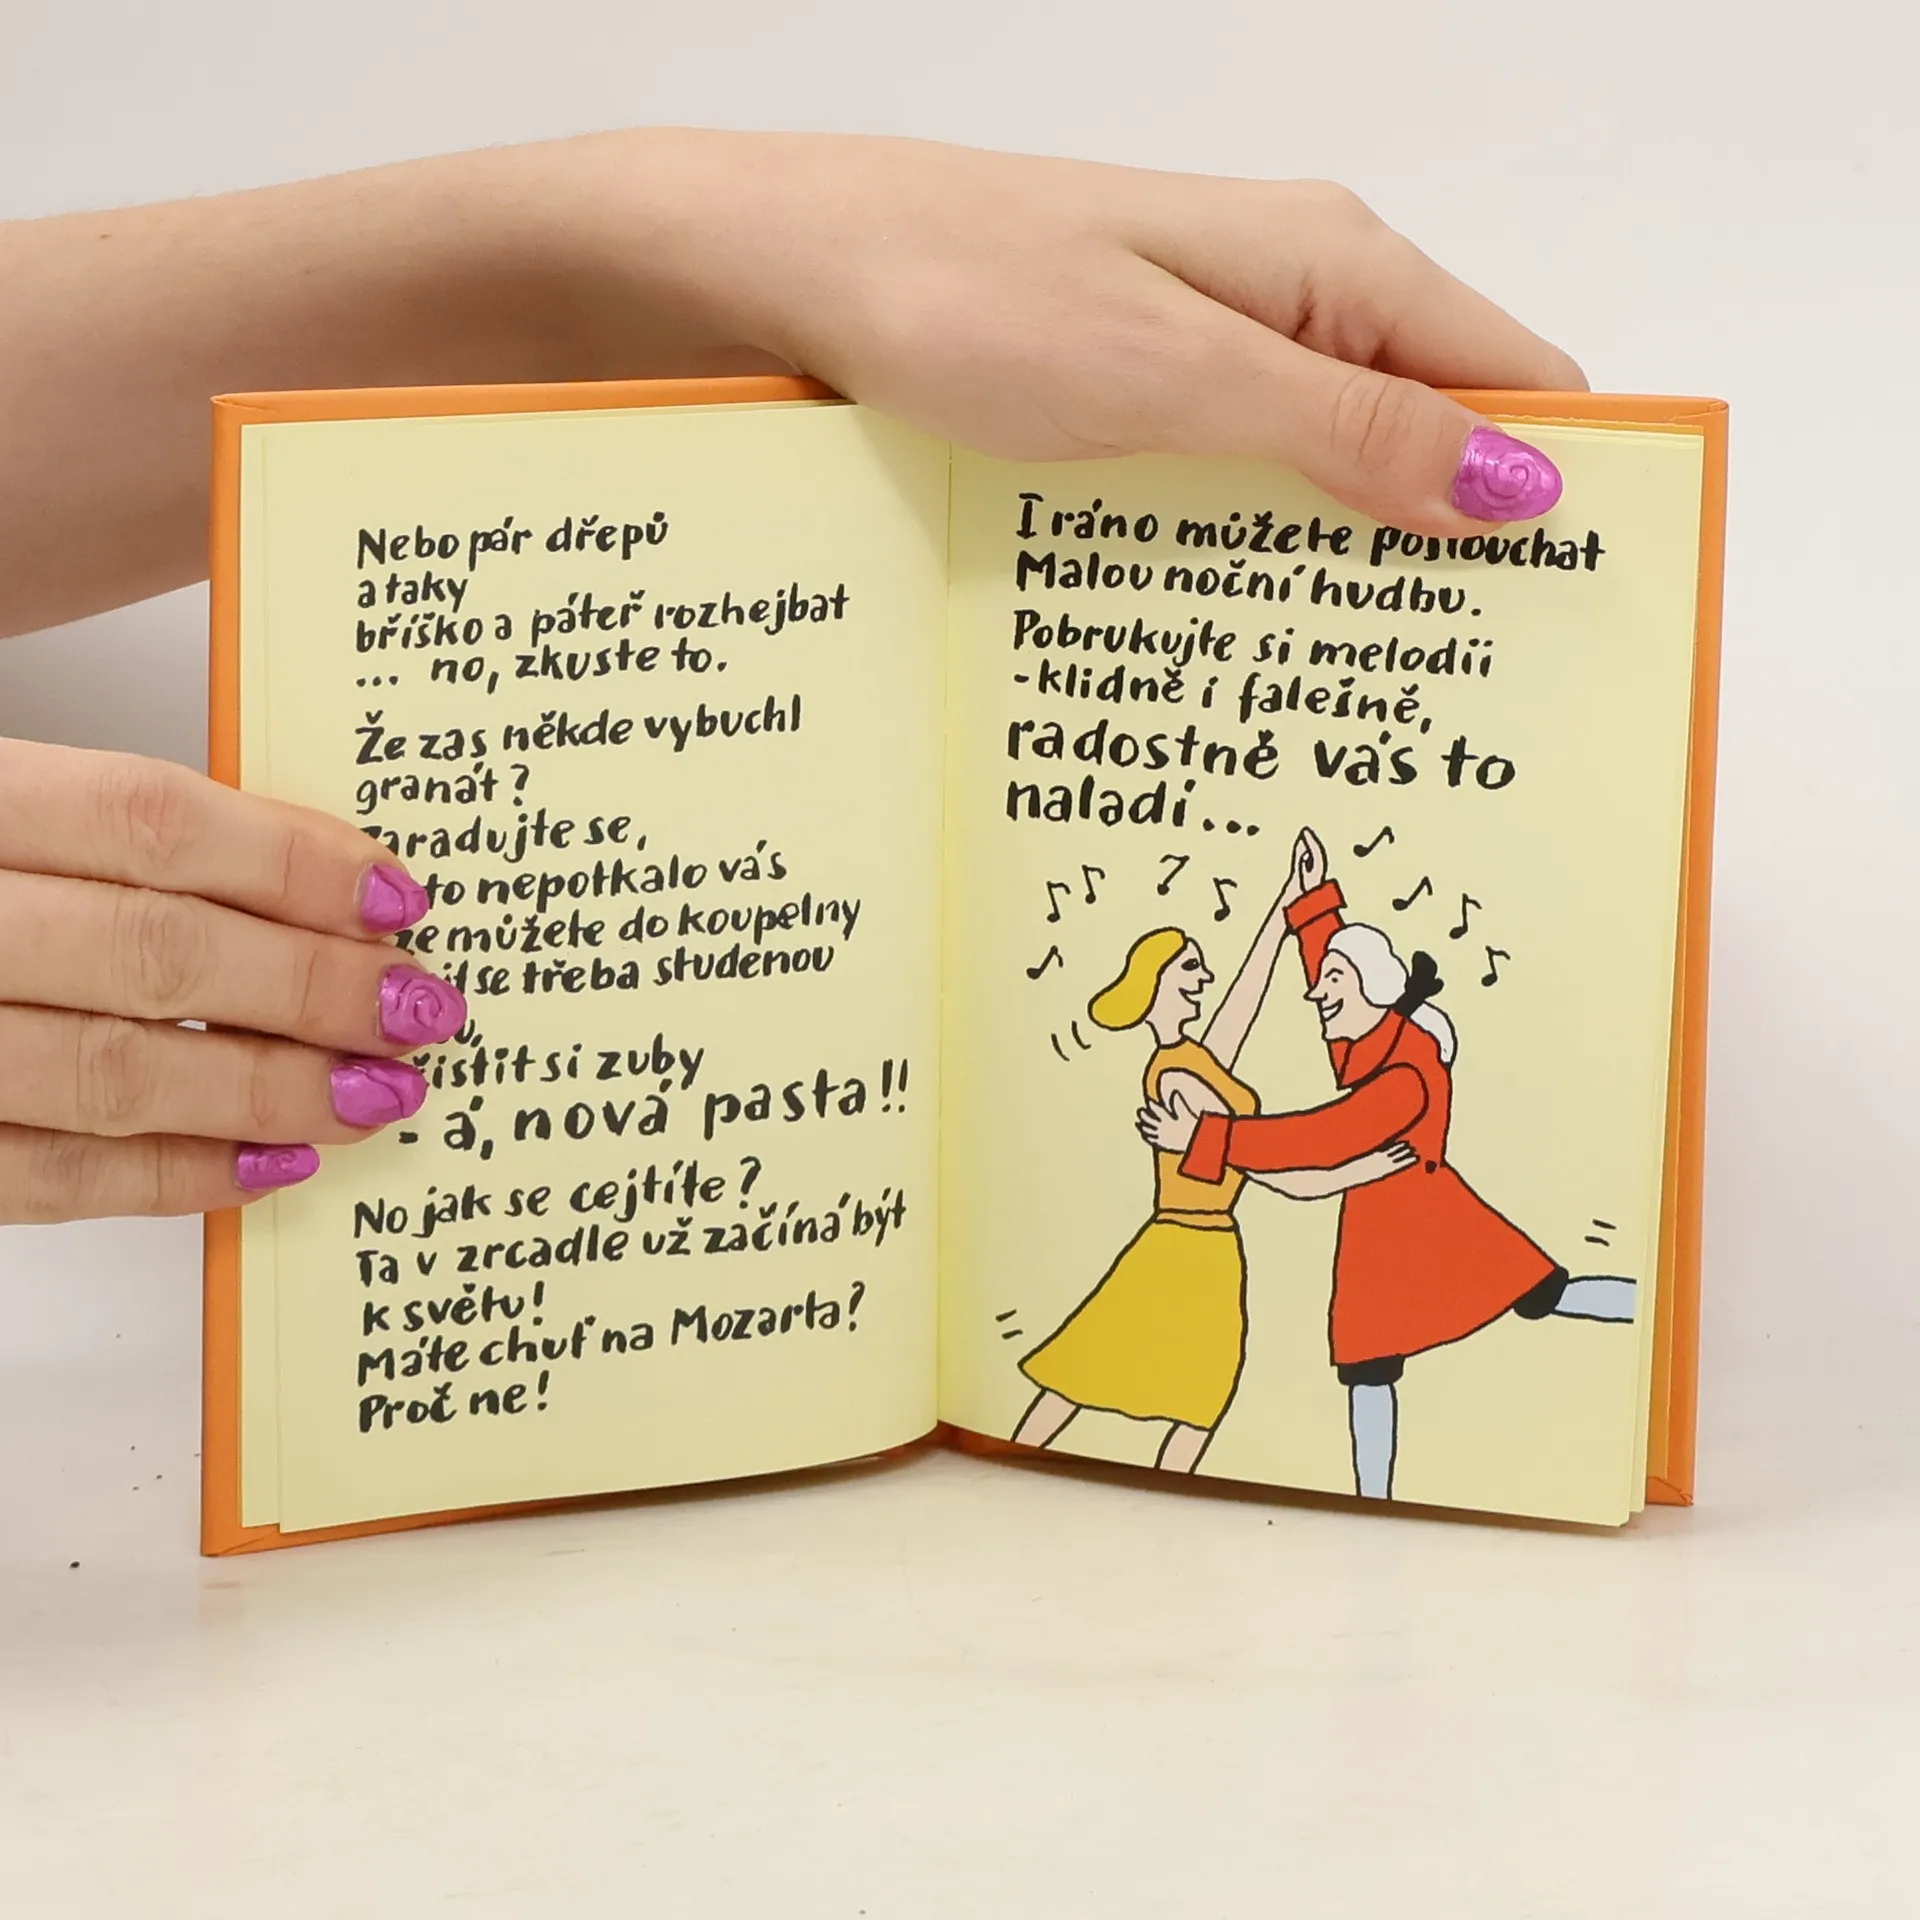 Nebo pár dřepů
a taky
bříško a páteř rozhejbat
... no, zkuste to.
Že zas někde vybuchl
granát?
se,
to nepotkalo vás
můžete do koupelny
se třeba studenou
si zuby
- á, nová pasta!!
No jak se cejtíte?
Ta v zrcadle už začíná být
k světu!
Máte chuť na Mozarta?
Proč ne!
I ráno můžete poslouchat
Malou noční hudbu.
Pobrukujte si melodii
- klidně i falešně,
radostně vás to
naladí...